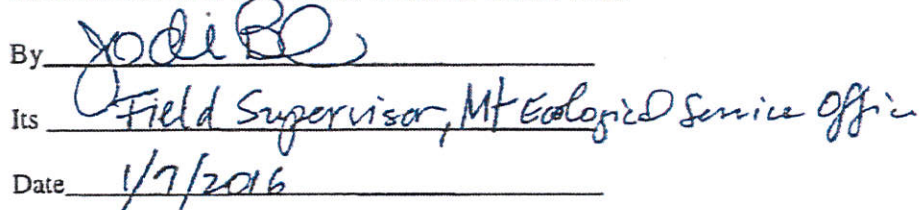 By Jodi
Its Field Supervisor, Mt Ecological Service Office
Date 1/7/2016